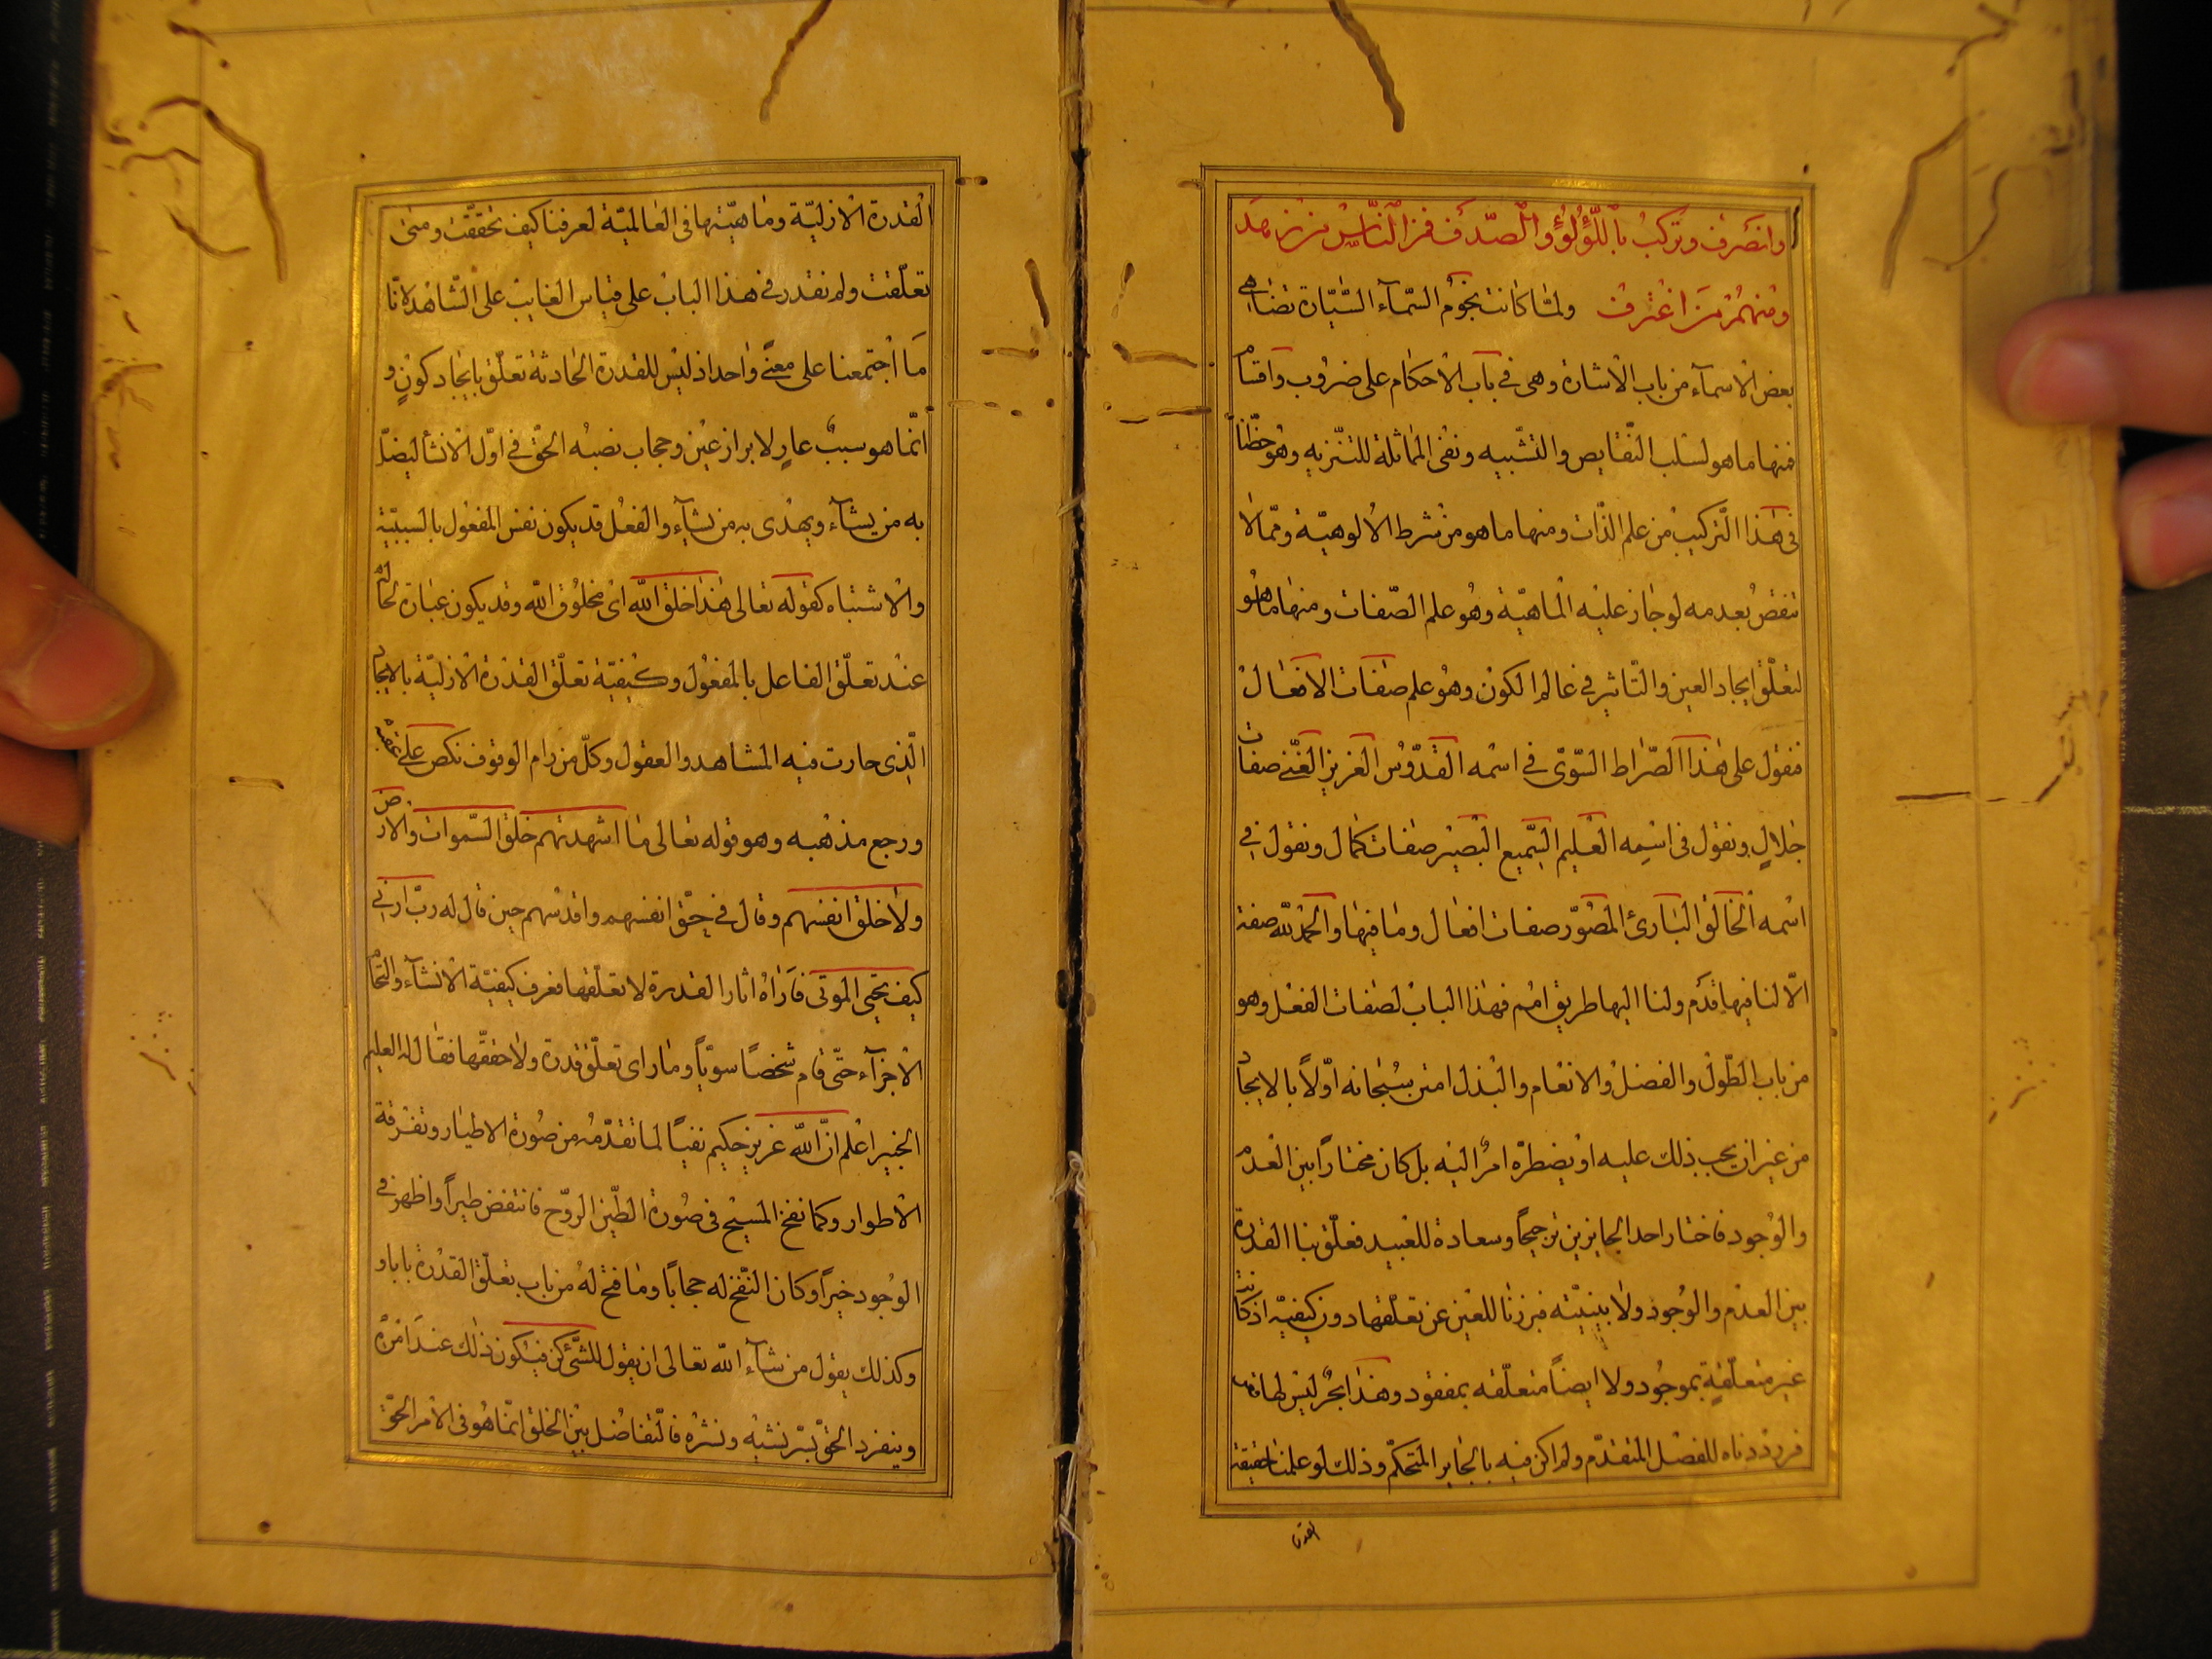 وانصرف وتركب باللؤلؤ والصدف فمن الناس من زهد
ومنهم من اغترف ولما كانت نجوم السمآء السيارة تضاهي
بعض الاسمآء من باب الاشارة وهى في باب الاحكام على ضروب واقسام
فمنها ما هو لسلب النقايص والتشبيه ونفى المماثلة للتنزيه وهو حظنا
في هذا التركيب من علم الذات ومنها ما هو من شرط الالوهية ومما لا
تنقض بعدمه لو جاز عليه الماهية وهو علم الصفات ومنها ما هو
لتعلق ايجاد العين والتاثير في عالم الكون وهو علم صفات الافعال
فنقول على هذا الصراط السوى في اسمه القدوس العزيز الغنى صفات
جلال ونقول فى اسمه العليم السميع البصير صفات كمال ونقول في
اسمه الخالق البارئ المصور صفات افعال وما فيها والحمد لله صفة
الا لنا فيها قدم ولنا اليها طريق امم فهذا الباب لصفات الفعل وهو
من باب الطول والفضل والانعام والبذل امتن سبحانه اولاً بالايجاد
من غير ان يجب ذلك عليه او يضطره امر اليه بل كان مختاراً بين العدم
والوجود فاختار احد الجايزين ترجيحاً وسعادة للعبيد فعلق بنا القدرة
بين العدم والوجود ولا بينيته فبرزنا للعين عن تعلقها دون كيفية اذ كانت
غير متعلقة بموجود ولا ايضاً متعلقه بمفقود وهذا بحر ليس لها قعر
فرددناه للفصل المتقدم ولم اكن فيه بالجاير المتحكم وذلك لو علمنا حقيقة
القدرة
القدرة الازلية وماهيتها فى العالمية لعرفنا كيف تحققت ومتى
تعلقت ولم نقدر في هذا الباب على قياس الغايب على الشاهد لانا
ما اجتمعنا على معنى واحد اذ ليس للقدرة الحادثة تعلق بايجاد كون و
انما هو سبب عار لابراز عين وحجاب نصبه الحق في اول الانشأ ليضل
به من يشآء ويهدى به من يشآء والفعل قد يكون نفس المفعول بالسببية
والاشتباه كقوله تعالى هذا خلق الله اى مخلوق الله وقد يكون عبارة الحالة
عند تعلق الفاعل بالمفعول وكيفية تعلق القدرة الازلية بالايجاد
الذى حارت فيه المشاهد والعقول وكل من رام الوقوف نكص على عقبه
ورجع مذهبه وهو قوله تعالى ما اشهدتهم خلق السموات والارض
ولا خلق انفسهم وقال في حق انفسهم واقدسهم حين قال له رب ارني
كيف تحيى الموتى فاراه اثار القدرة لا تعلقها فعرف كيفية الانشآء والتحام
الاجزآء حتى قام شخصاً سوياً وما راى تعلق قدرة ولا حققها فقال له العليم
الخبير اعلم ان الله عزيز حكيم نفياً لما تقدمه من صورة الاطيار وتفرقة
الاطوار وكما نفخ المسيح فى صورة الطين الروح فانتفض طيراً واظهر في
الوجود خيراً وكان النفخ له حجاباً وما فتح له من باب تعلق القدرة بابا و
وكذلك يقول من شآء الله تعالى ان يقول للشئ كن فيكون ذلك عند امره
وينفرد الحق بسر نشبه ونشره فالتفاضل بين الخلق انما هو فى الامر الحق